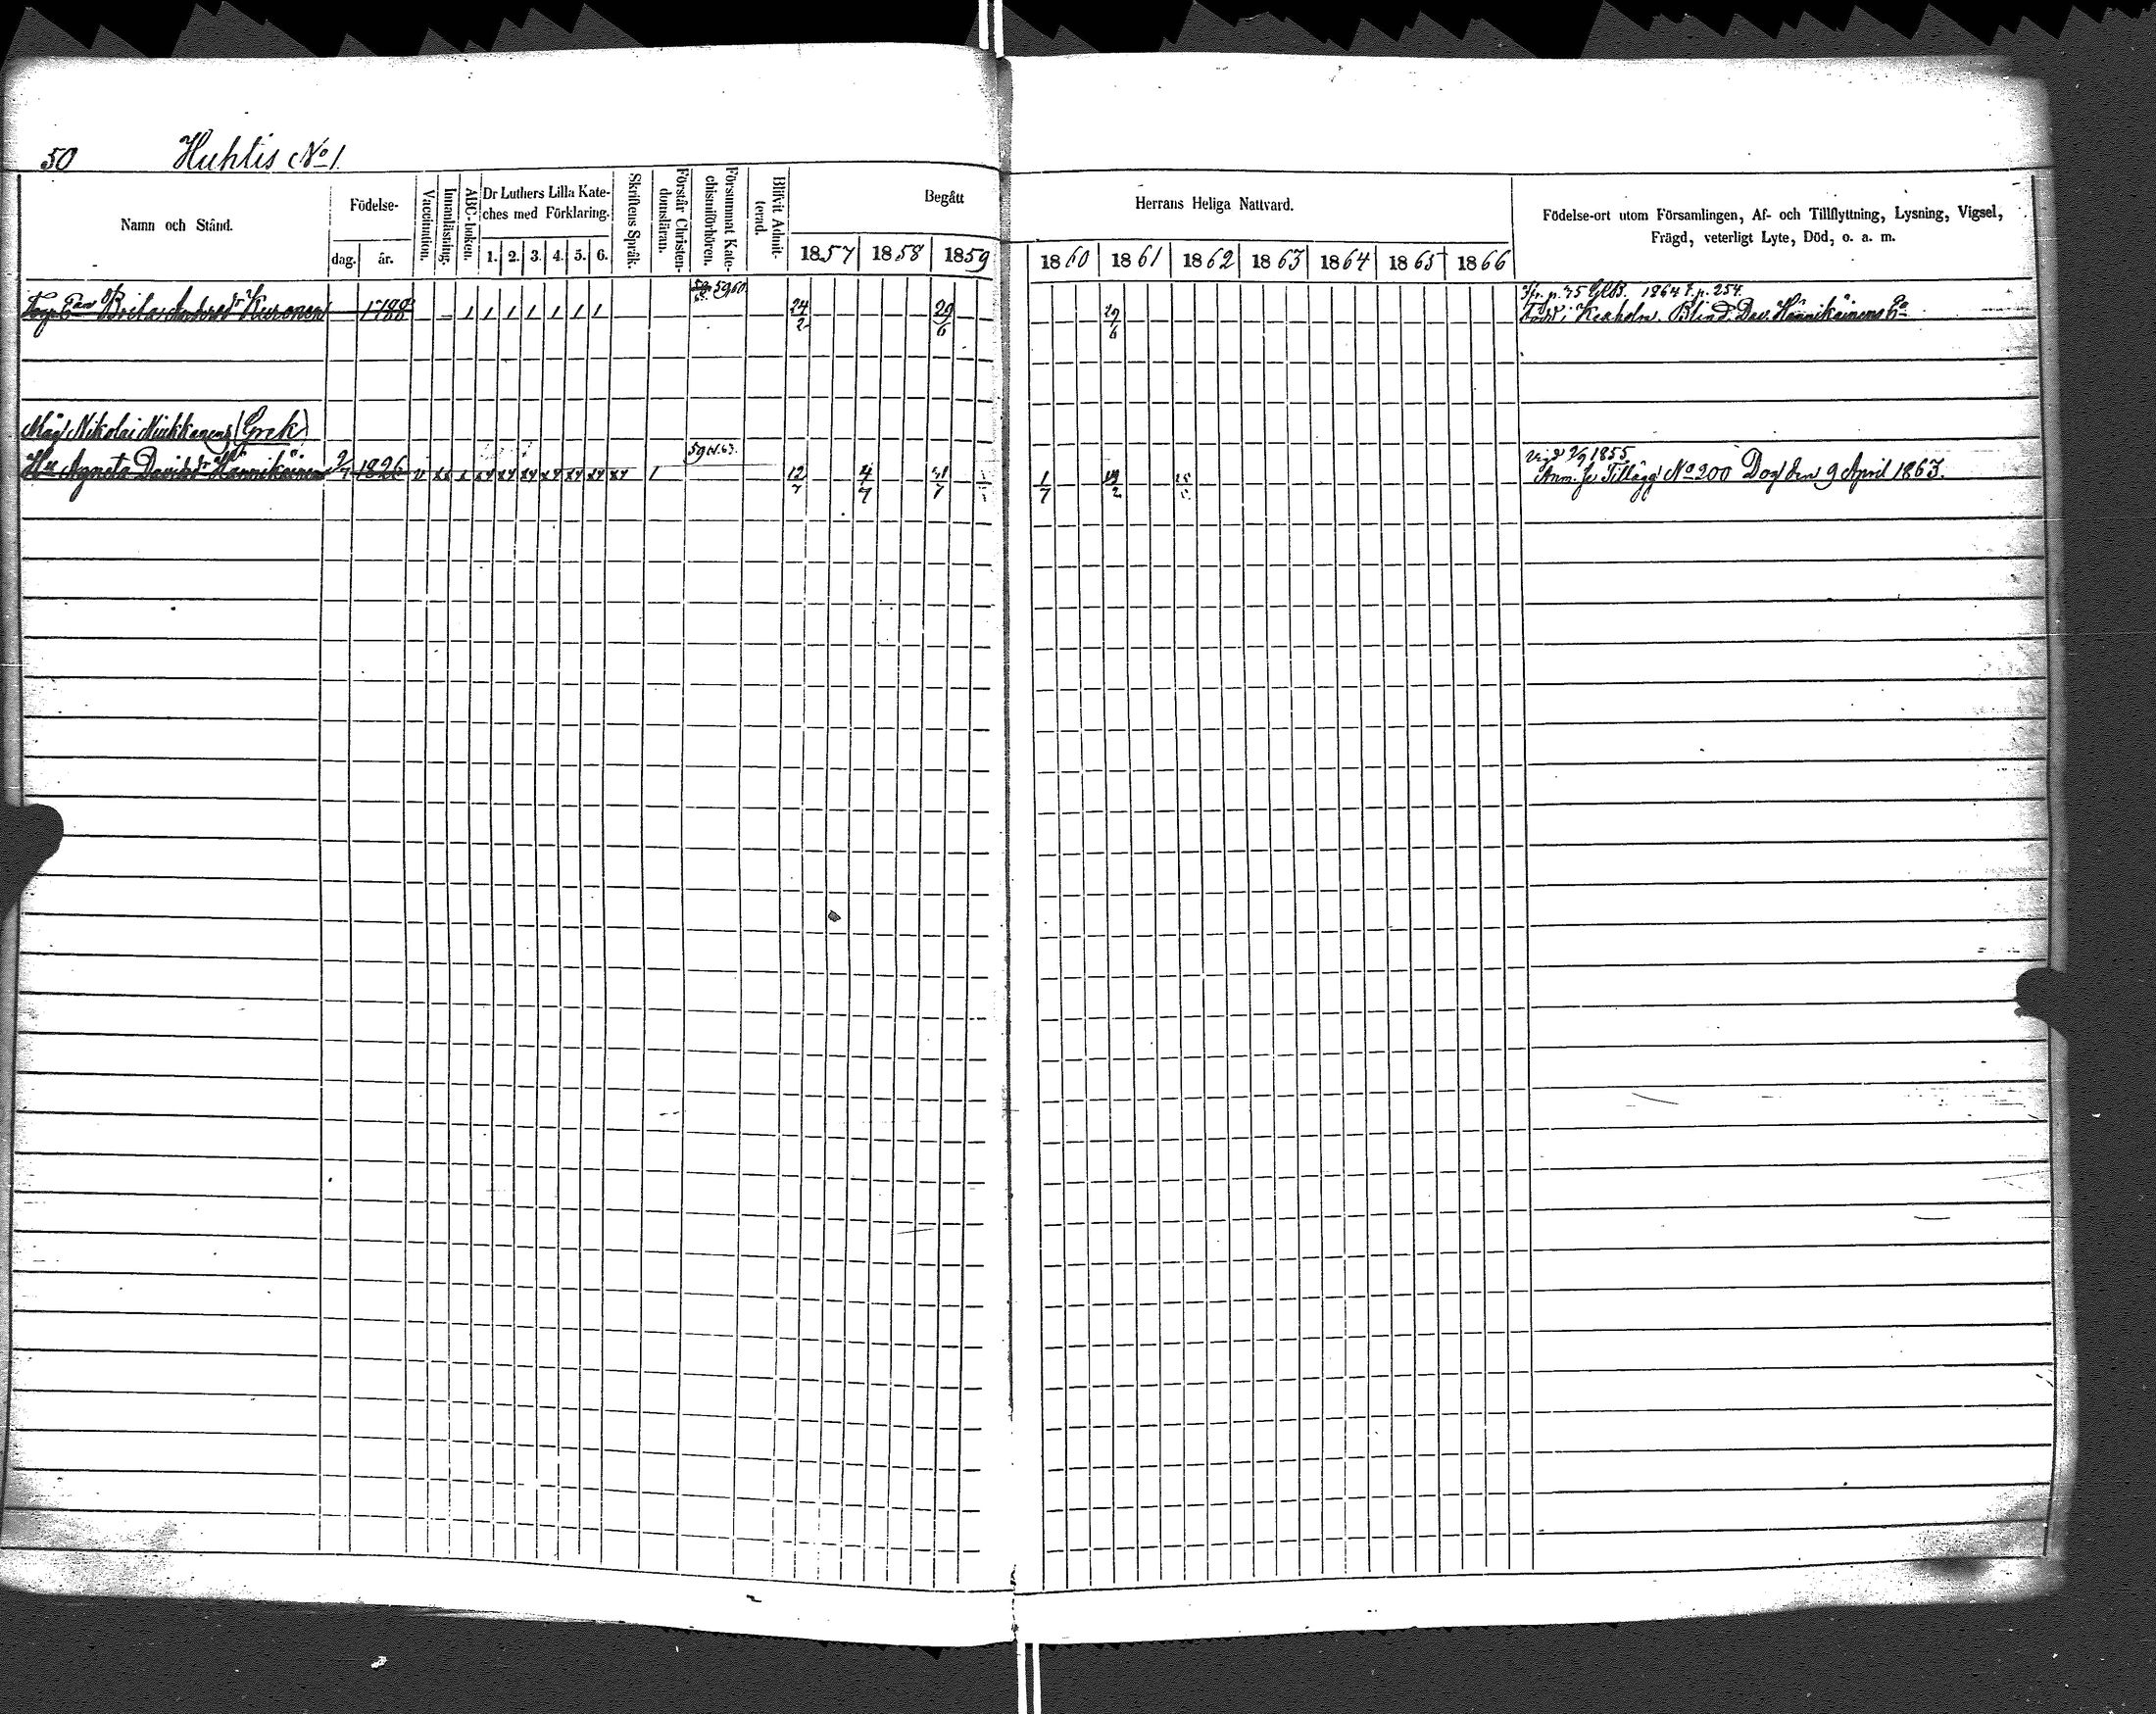 50 Huhtis No 1.
Namn och Stånd.
Födelse-
dag. år.
Vaccination.
Innanläsning.
ABC-boken.
Dr Luthers Lilla Kate-
ches med Förklaring.
1. 2. 3. 4. 5. 6.
Skriftens Språk.
Förstår Christen-
domsläran.
Försummat Kate-
chismiförhören.
Blifvit Admit-
terad.
Begått Herrans Heliga Nattvard.
1857 1858 1859 1860 1861 1862 1863 1864 1865 1866
Födelse-ort utom Församlingen, Af- och Tillflyttning, Lysning, Vigsel,
Frägd, veterligt Lyte, Död, o. a. m.
59 60. fr. p. 75 1864 t. p. 254.
Brita Andersdr Kuronen 1788 1 1 1 1 1 1 1 24/2 29/6 29/6 Född i Kexholm. Blind. Dav. Hännikäinens
Måg Nikolai Niukkanens (Grek)
59 63. vigd 1855
Hu Agneta Davidsdr Hännikäinen 2/7 1826 1 12/7 4/7 1/7 Anm. Je Tillägg No 200 Dog den 9 April 1863.